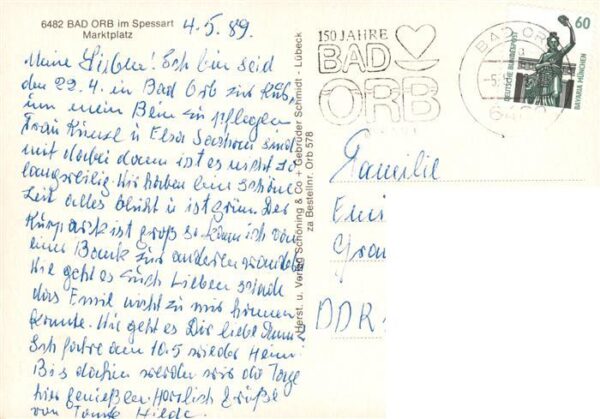 6482 BAD ORB im Spessart
Marktplatz
4.5.89.
Meine Lieben! Ich bin seid
den 29.4 in Bad Orb zur Kur,
um mein Bein zu pflegen
Frau Künzl u Elsa sind
mit dabei dann ist es nicht so
langweilig. Wir haben eine schöne
Zeit alles blüht u ist grün. Der
Kurpark ist groß so kann ich von
einer Bank zur anderen wandern
Wie geht es Euch Lieben schade
das Emil nicht zu mir kommen
konnte. Wie geht es Dir liebe
Ich fahre am 10.5 wieder Heim
Bis dahin werden wir die Tage
hier genießen. Herzlich Grüße
von Tante Hilde.
Herst. u. Verlag Schöning & Co + Gebrüder Schmidt - Lübeck
za Bestellnr. Orb 578
150 JAHRE
BAD
ORB
BAD ORB
-5.
60
DEUTSCHE BUNDESPOST
BAVARIA MÜNCHEN
Familie
Emi
DDR